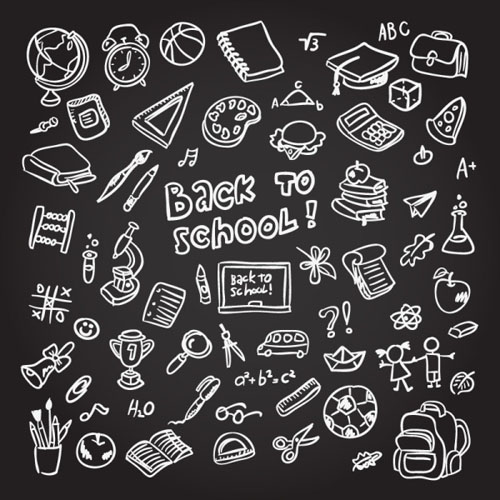 ABC
√3
C
A b
A+
BACK TO
SCHOOL!
BACK TO
SCHOOL!
O X
X O
X
?!
1
a²+b²=c²
H₂O